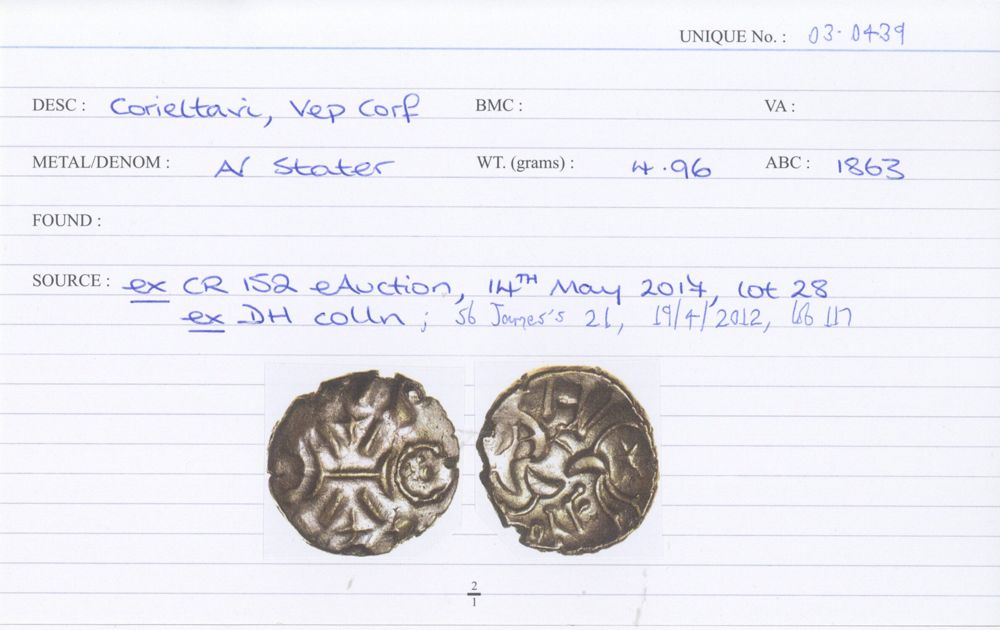 UNIQUE No. : 03-0439
DESC : Corieltavi, Vep Corf BMC : VA :
METAL/DENOM : AV Stater WT. (grams) : 4.96 ABC : 1863
FOUND :
SOURCE : ex CR 152 eAuction, 14TH May 2017, lot 28
ex DH colln ; St James's 21, 19/4/2012, lot 117
2
1